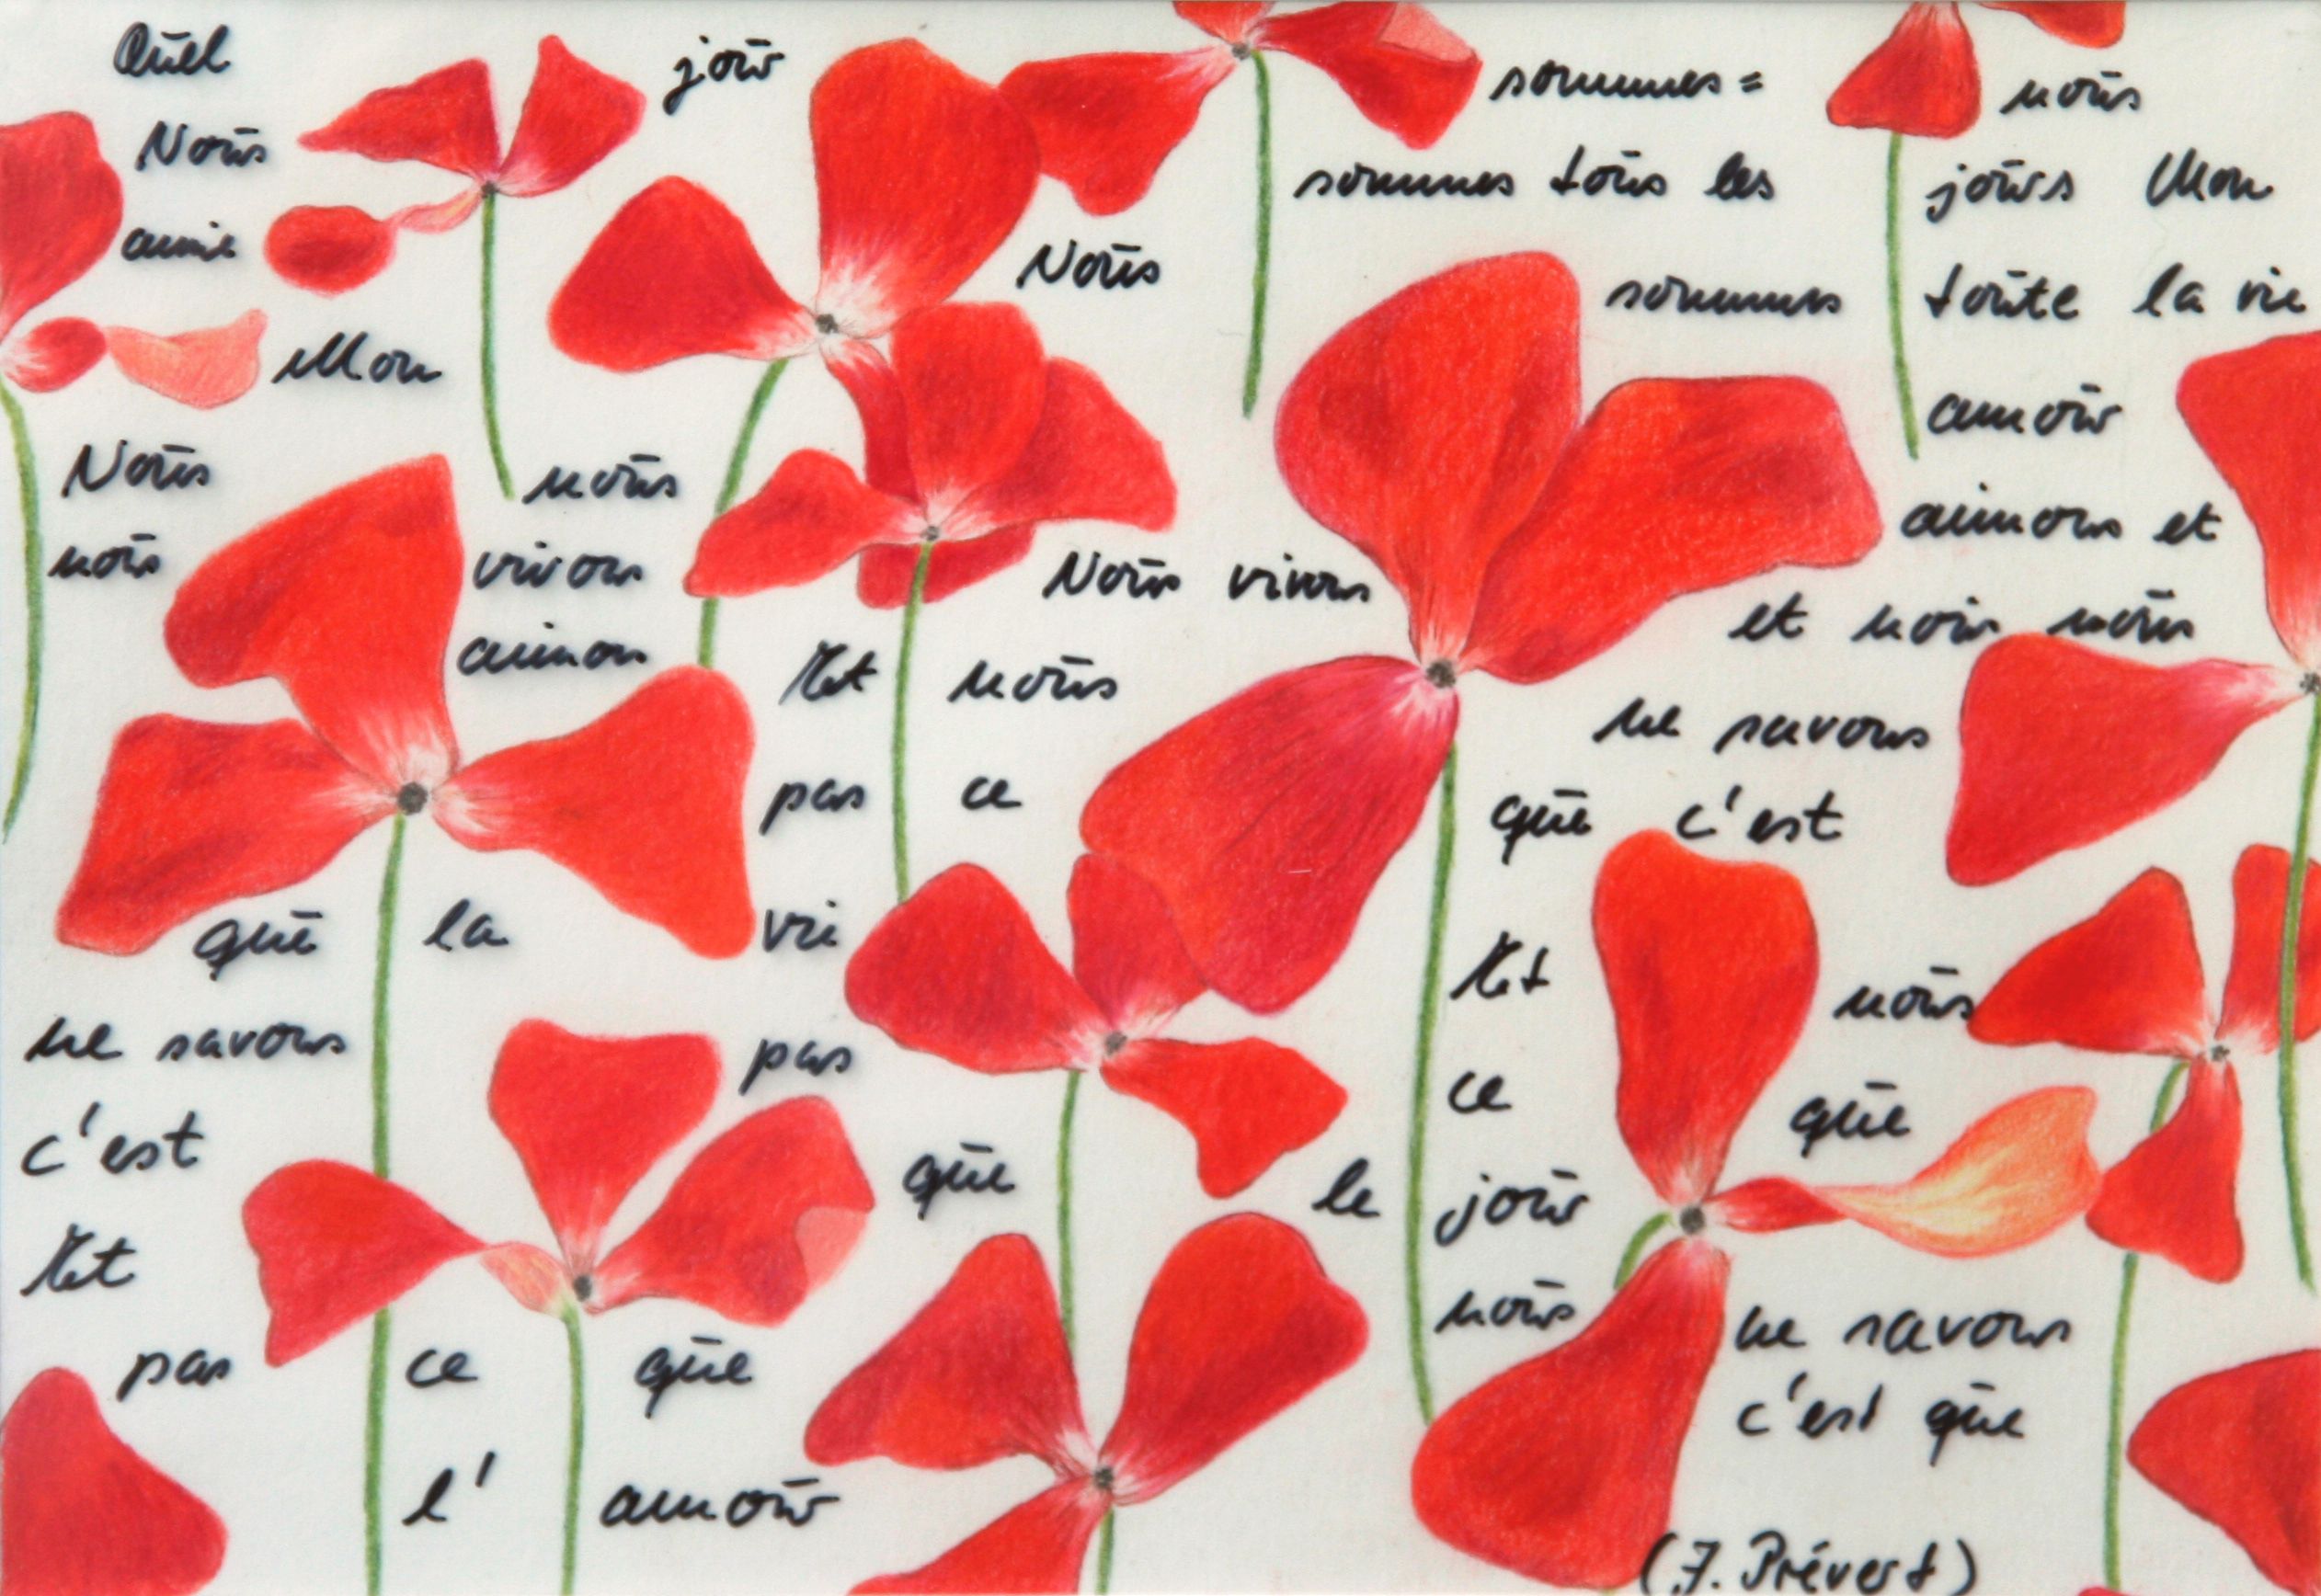 Quel jour sommes=nous
Nous sommes tous les jours Mon
amie Nous sommes toute la vie
Mon amour
Nous nous aimons et
nous vivons Nous vivons
et nous nous
aimon Et nous ne savons
pas ce que c'est
que la vie Et nous
ne savons pas ce que
c'est que le jour
Et nous ne savons
pas ce que c'est que
l'amour
(J. Prévert)